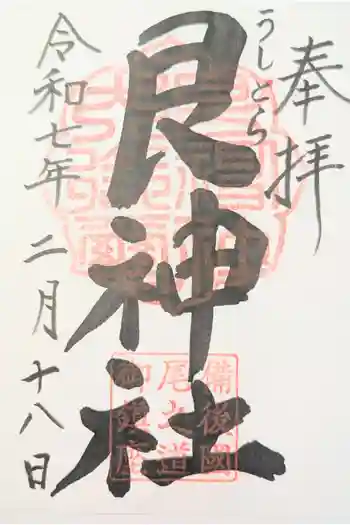 奉拝
うしとら
艮神社
令和七年 二月十八日
備後國
尾之道
御鎮座